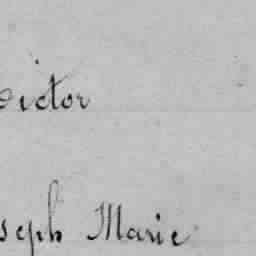 ictor
seph Marie